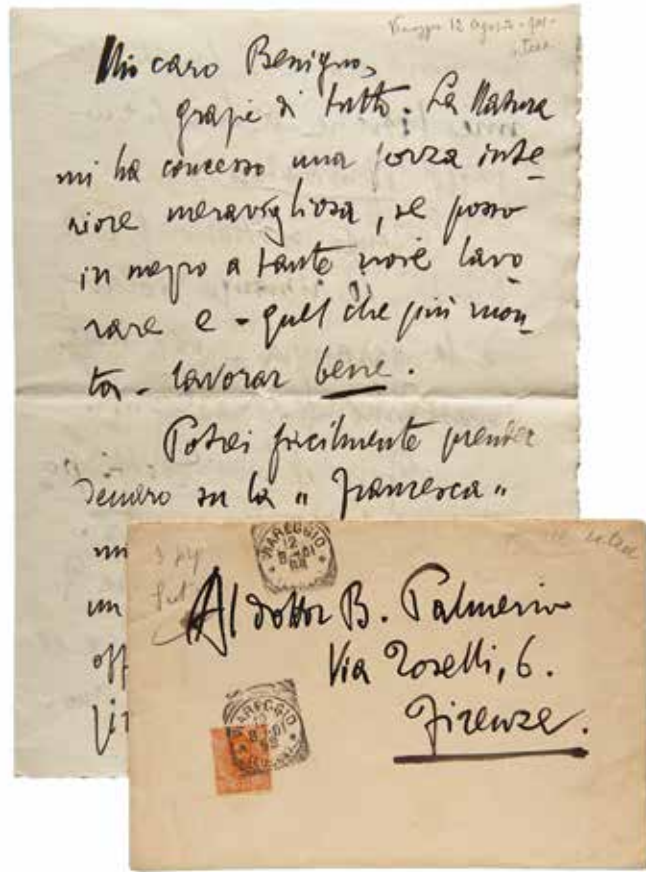 Viareggio 12 agosto
Mio caro Benigno,
grazie di tutto. La Natura
mi ha concesso una forza inte-
riore meravigliosa, se posso
in mezzo a tante noie lavo
rare e - quel che più mon-
ta - lavorar bene.
Potrei facilmente prender
denaro su la "Francesca"
mi
un
off
VIAREGGIO
12
8-01
8S
Al dottor B. Palmerio
Via Roselli, 6.
Firenze.
VIAREGGIO
12
8-01
8S